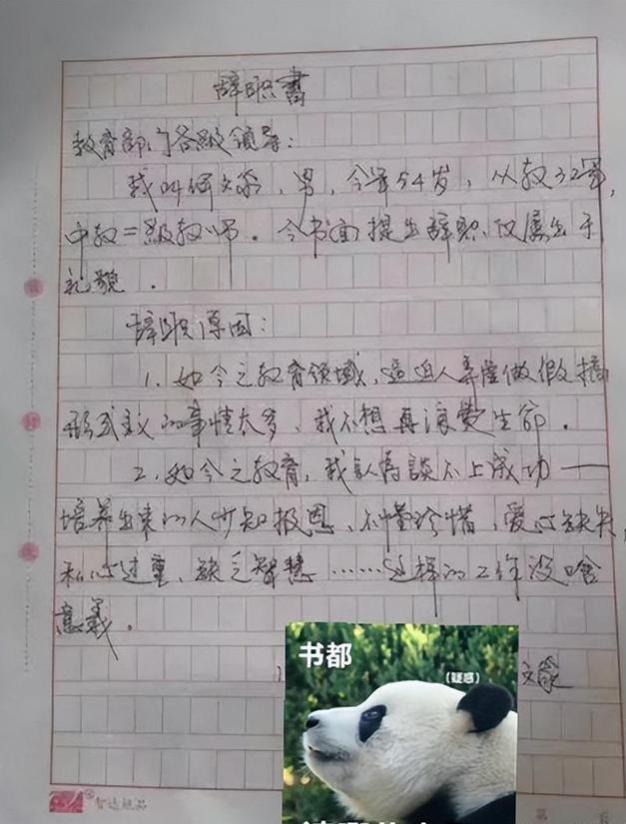 辞职書
教育部门各級领导：
我叫何文，男，今年54岁，从教32年，
中教二級教师。今书面提出辞职，仅属出于
礼貌.
辞职原因：
1.如今之教育领域，逼迫人弄虚做假、搞
形式主义的事情太多，我不想再浪費生命.
2.如今之教育，我认為談不上成功——
培养出来的人少知报恩、不懂珍惜，爱心缺失，
私心过重，缺乏智慧……这样的工作没啥
意義.
书都
（疑惑）
智达纸品
第 页